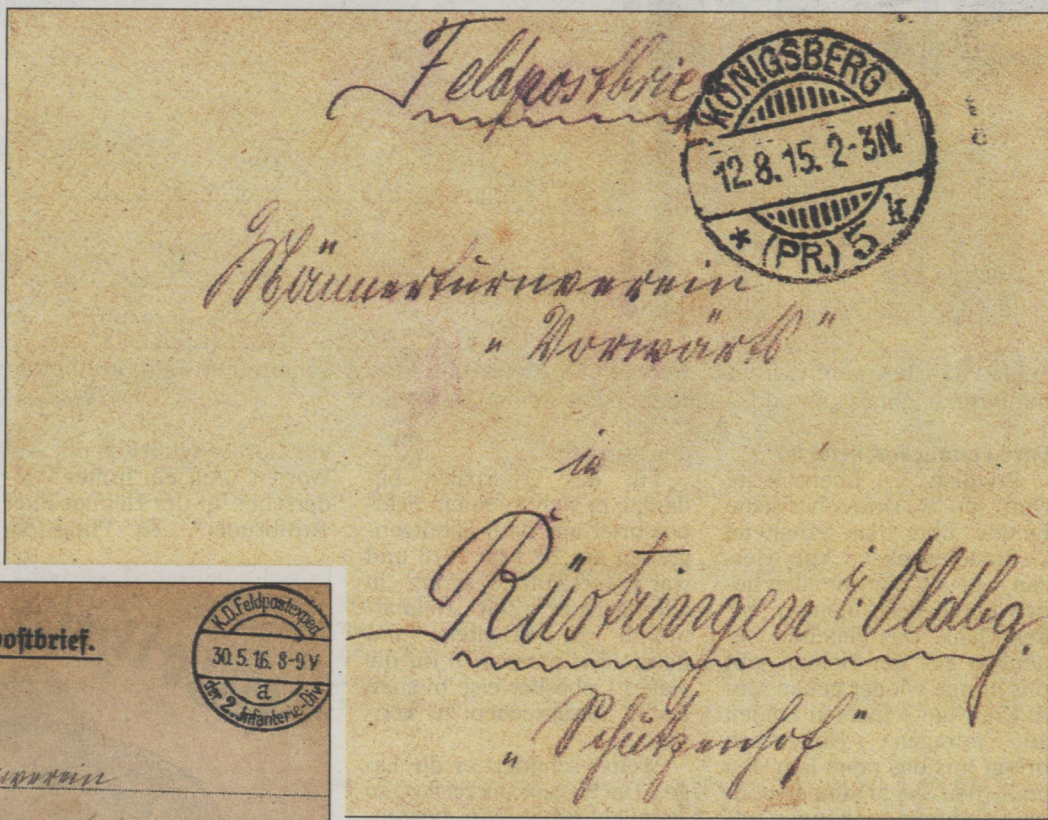 Feldpostbrief
KÖNIGSBERG
12.8.15. 2-3N.
* (PR.) 5 k
Männerturnverein
„Vorwärts"
in
Rüstringen i. Oldbg.
„Schützenhof"
postbrief.
K.D. Feldpostexped.
30.5.16. 8-9V
a
der 2. Infanterie-Div.
verein